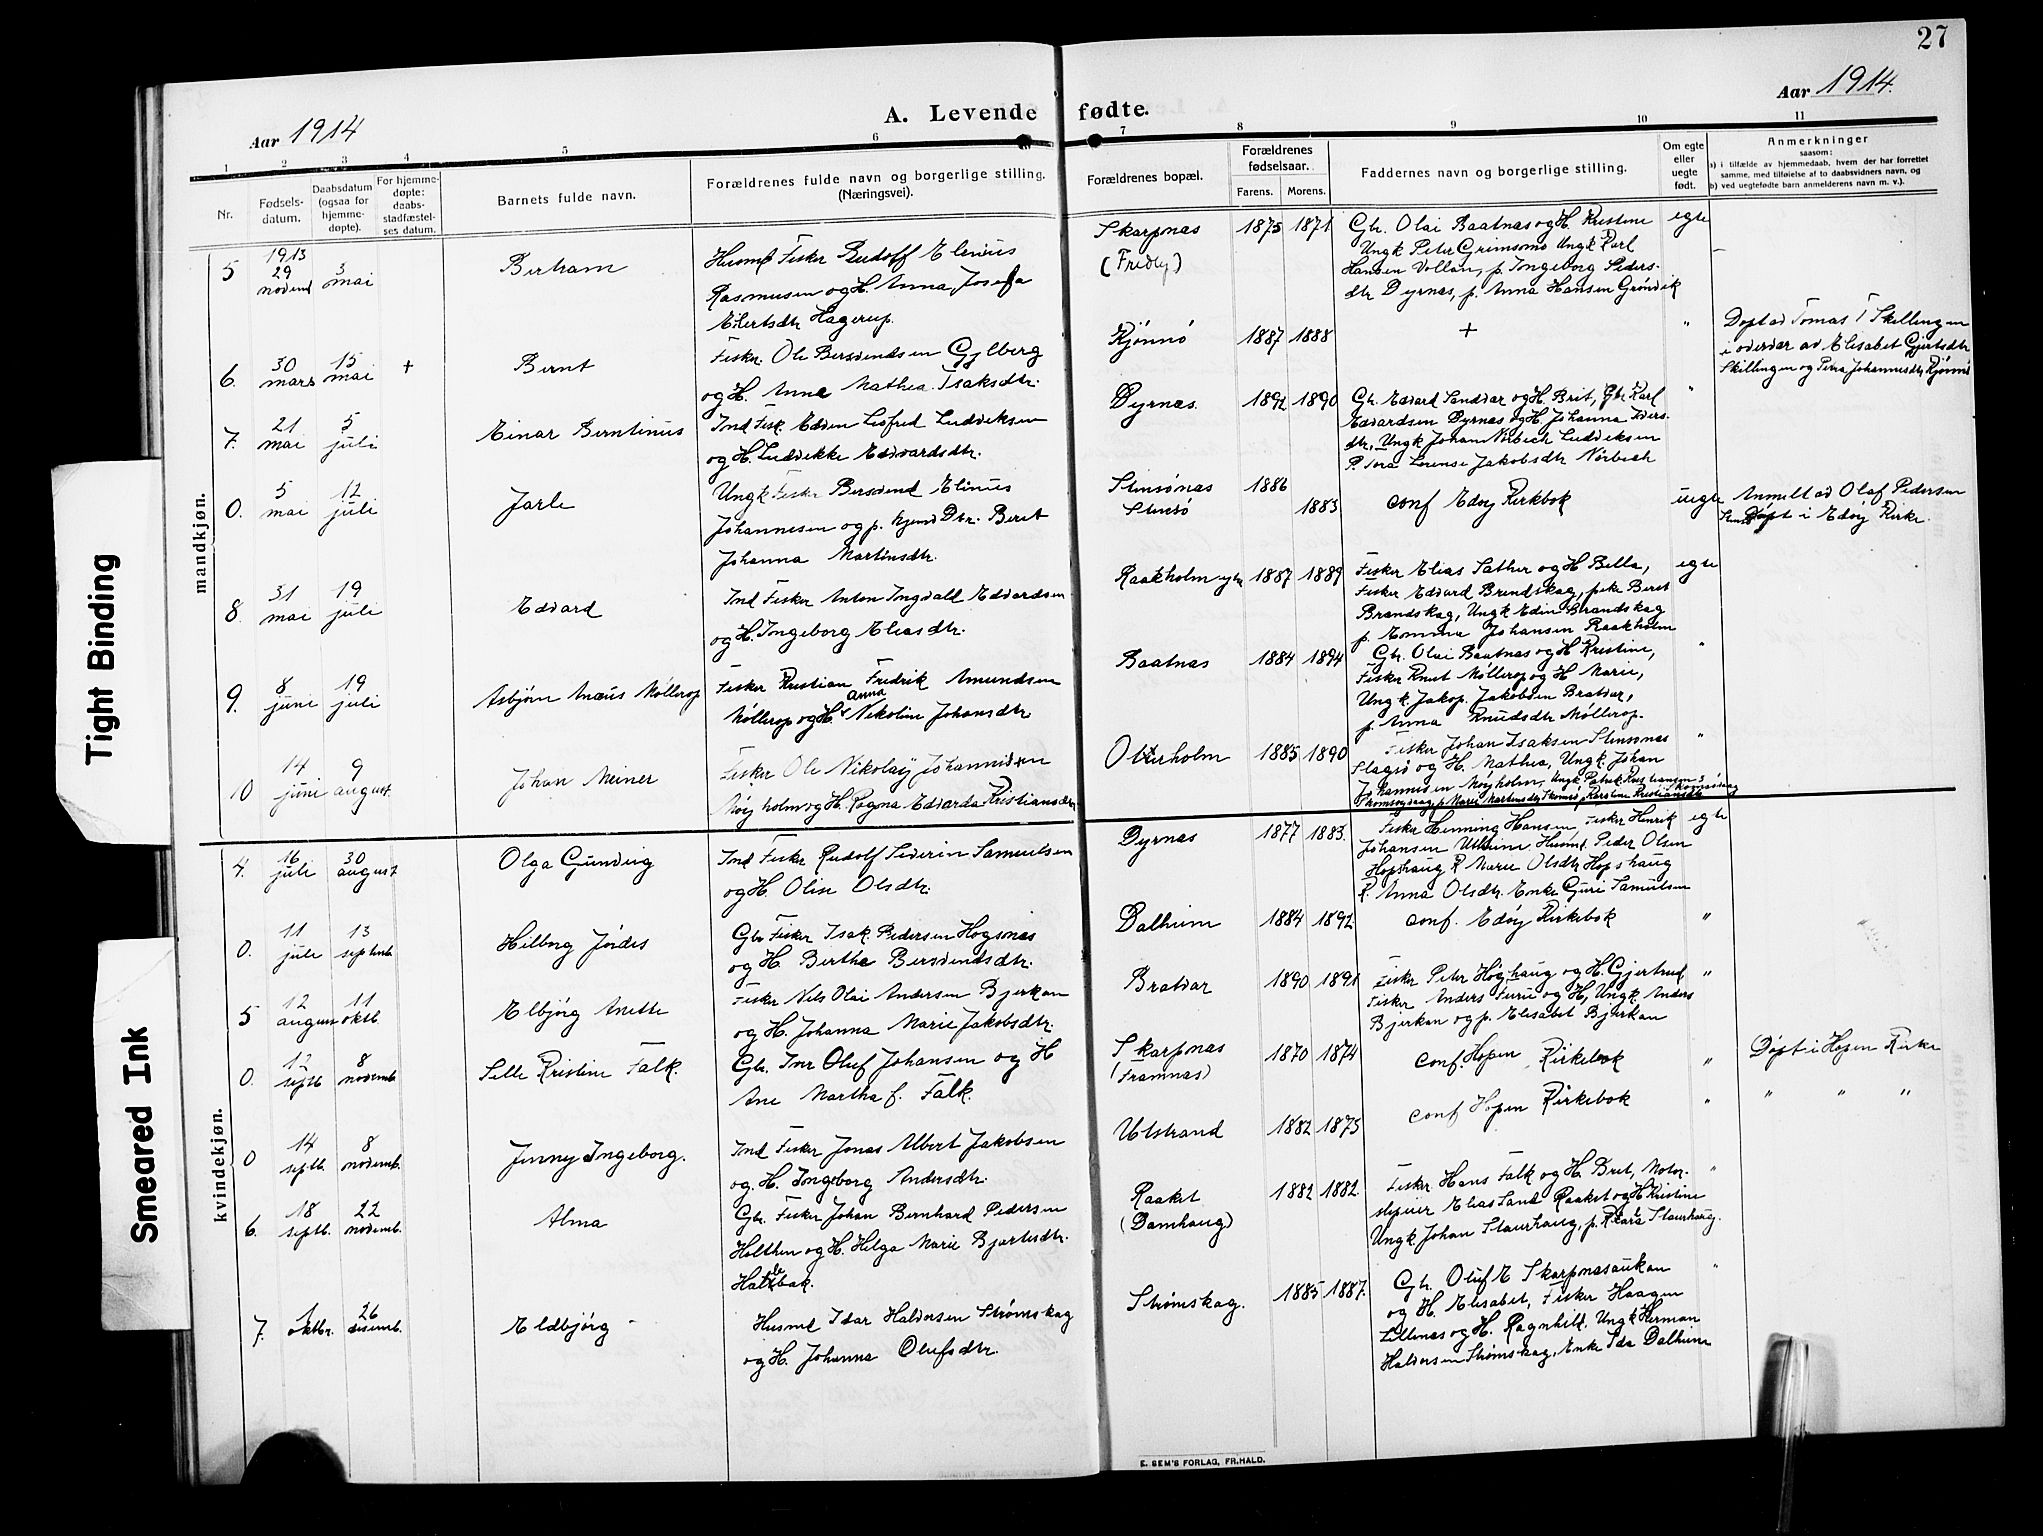 27
Aar 1914
A. Levende fødte.
Aar 1914.
1 2 3 4 5 6 7 8 9 10 11
Nr.
Fødsels-
datum.
Daabsdatum
(ogsaa for
hjemme-
døpte).
For hjemme-
døpte:
daabs-
stadfæstel-
ses datum.
Barnets fulde navn.
Forældrenes fulde navn og borgerlige stilling.
(Næringsvei).
Forældrenes bopæl.
Forældrenes
fødselsaar.
Farens. Morens.
Faddernes navn og borgerlige stilling.
Om egte
eller
uegte
født.
Anmerkninger
saasom:
a) i tilfælde av hjemmedaab, hvem der har forrettet
samme, med tilføielse af to daabsvidners navn, og
b) ved uegtefødte barn anmelderens navn m. v.).
mandkjøn.
5 1913 29 novemb 3 mai
Husmd Fisker Rudolf Elenius
Rasmusen og H. Anna Josefa
Eilertsdtr Hagerup.
Skarpnas 1875 1871
Gbr. Olai Baatnas og H. Kristine
Ungk Peter Grimsmo Ungk Karl
Hansen Vollan, p. Ingeborg Peders-
dtr Dyrnes, p. Anna Hansen Grønvik
egte
6. 30 mars 15 mai + Bernt
Fisker Ole Bersvendsen Gylberg
og H. Anne Mathea Isaksdtr.
1887 1888 + "
Døpt av Tomas T Skillingen
i overvær av Elisabet Gjertsdtr
Skillingen og Petra Johannesdtr
7. 21 mai 5 juli Einar Berntinus
Ind Fisk. Edvin Leofred Ludviksen
og H. Ludvikke Edvardsdtr.
Dyrnes. 1892 1890
Gbr. Edvard Sandvær og H. Brit, Gbr Karl
Edvardsen Dyrnes og H Johanna Iversdtr,
Ungk Johan Nørbech Ludviksen
P. Tora Lorense Jakobsdtr Nørbech
"
0. 5 mai 12 juli Jarle
Ungk Fisker Bersvend Elinus
Johannesen og p. hjemv Dtr. Beret
Johanna Martinsdtr.
Stensønas 1886
Stensø 1883
conf Edøy Kirkbok
uegte
Anmelt ad Olaf Pedersen
Døpt i Edøy Kirke.
8. 31 mai 19 juli Edvard
Ind Fisker Anton Ingvald Edvardsen
og H. Ingeborg Eliasdtr.
Raakholm 1887 1889
Fisker Elias Sather og H Bella,
Fisker Edvard Brandskag, pike Beret
Brandskag, Ungk Edin Brandskag
p. Emma Johansen Raakholm
egte
9. 8 juni 19 juli Asbjørn Anæus Møllerop
Fisker Kristian Fredrik Amundsen
Møllerop og H. Anna Nikoline Johansdtr
Baatnas 1884 1894
Gbr. Olai Baatnas og H Kristine,
Fisker Knut Møllerop og H Marie,
Ungk Jakop Jakobsen Bratvær,
p. Anna Knudsdtr Møllerop.
"
10 14 juni 9 august. Johan Meiner
Fisker Ole Nikolay Johannesen
Møyholm og H. Ragna Edvarda Kristiansdtr
Otterholm 1885 1890
Fisker Johan Isaksen Stensønas
Slagsø og H. Mathea, Ungk. Johan
Johannesen Møyholm, Ungk Patrik Kristiansen
p. Marie Martinsdtr
"
kvindekjøn.
4. 16 juli 30 august Olga Gunding
Ind Fisker Rudolf Severin Samuelsen
og H. Oline Olsdtr.
Dyrnas 1877 1883.
Fisker Henning Hansen, Fisker Henrik
Johansen Utheim Husmd. Peder Olsen
Hopshaug P. Marie Olsdtr Hopshaug
P. Anna Olsdtr. Enke Guri Samuelsen
egte
0. 11 juli 13 septemb. Hilborg Jørdis
Gbr Fisker Isak Pedersen Hogsnes
og H. Berthe Bersvendsdtr.
Dalheim 1884 1892
conf. Edøy Kirkebok "
5 12 august 11 oktb. Elbjørg Anette
Fisker Nels Olai Andersen Bjerkan
og H. Johanna Marie Jakobsdtr.
Bratvær 1890 1891
Fisker Peter Høghaug og H. Gjertrud,
Fisker Anders Furu og H, Ungk. Anders
Bjerkan og p. Elisabet Bjerkan
"
0. 12 septb 8 novemb. Sille Kristine Falk.
Gbr. Inr Oluf Johansen og H
Ane Martha f. Falk.
Skarpnas
(Framnas)
1870 1874
conf. Hopen Kirkebok "
Døpt i Hopen Kirke
0 14 septb. 8 novemb. Jenny Ingeborg.
Ind Fisker Jonas Albert Jakobsen
og H. Ingeborg Andersdtr.
Utstrand 1882 1875
conf Hopen Kirkebok "
" " "
6. 18 septb. 22 novemb. Alma
Gbr. Fisker Johan Bernhard Pedersen
Holthen og H. Helga Marie Bjartesdtr.
Raaket
(Damhaug)
1882 1882.
Fisker Hans Falk og H. Brit, Motor-
skipper Elias Sand Raaket og H Kristine
Ungk Johan Staurhaug, p. Klara Staurhaug.
"
7. 1 oktbr. 26 desemb. Eldbjørg -
Husmd Idar Haldorsen Strømskag
og H. Johanna Olufsdtr.
Strømskag. 1885 1887.
Gbr. Oluf E Skarpnasaukan
og H. Elisabet, Fisker Haagen
Lillenes og H. Ragnhild. Ungk Herman
Haldorsen Strømskag, Enke Ida Dalheim
"
E. SEM'S FORLAG, FR.HALD.
Tight Binding
Smeared Ink